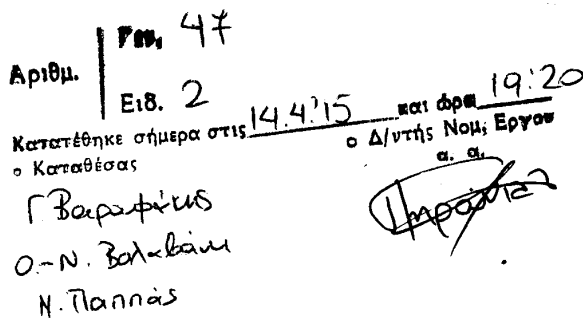 Αριθμ. Γεν. 47
Ειδ. 2
Κατατέθηκε σήμερα στις 14.4.'15 και ώρα 19:20
ο Καταθέσας ο Δ/ντής Νομ. Εργου
α. α.
Γ Βαρουφάκης
Ο.-Ν. Βαλαβάνη
Ν. Παππάς